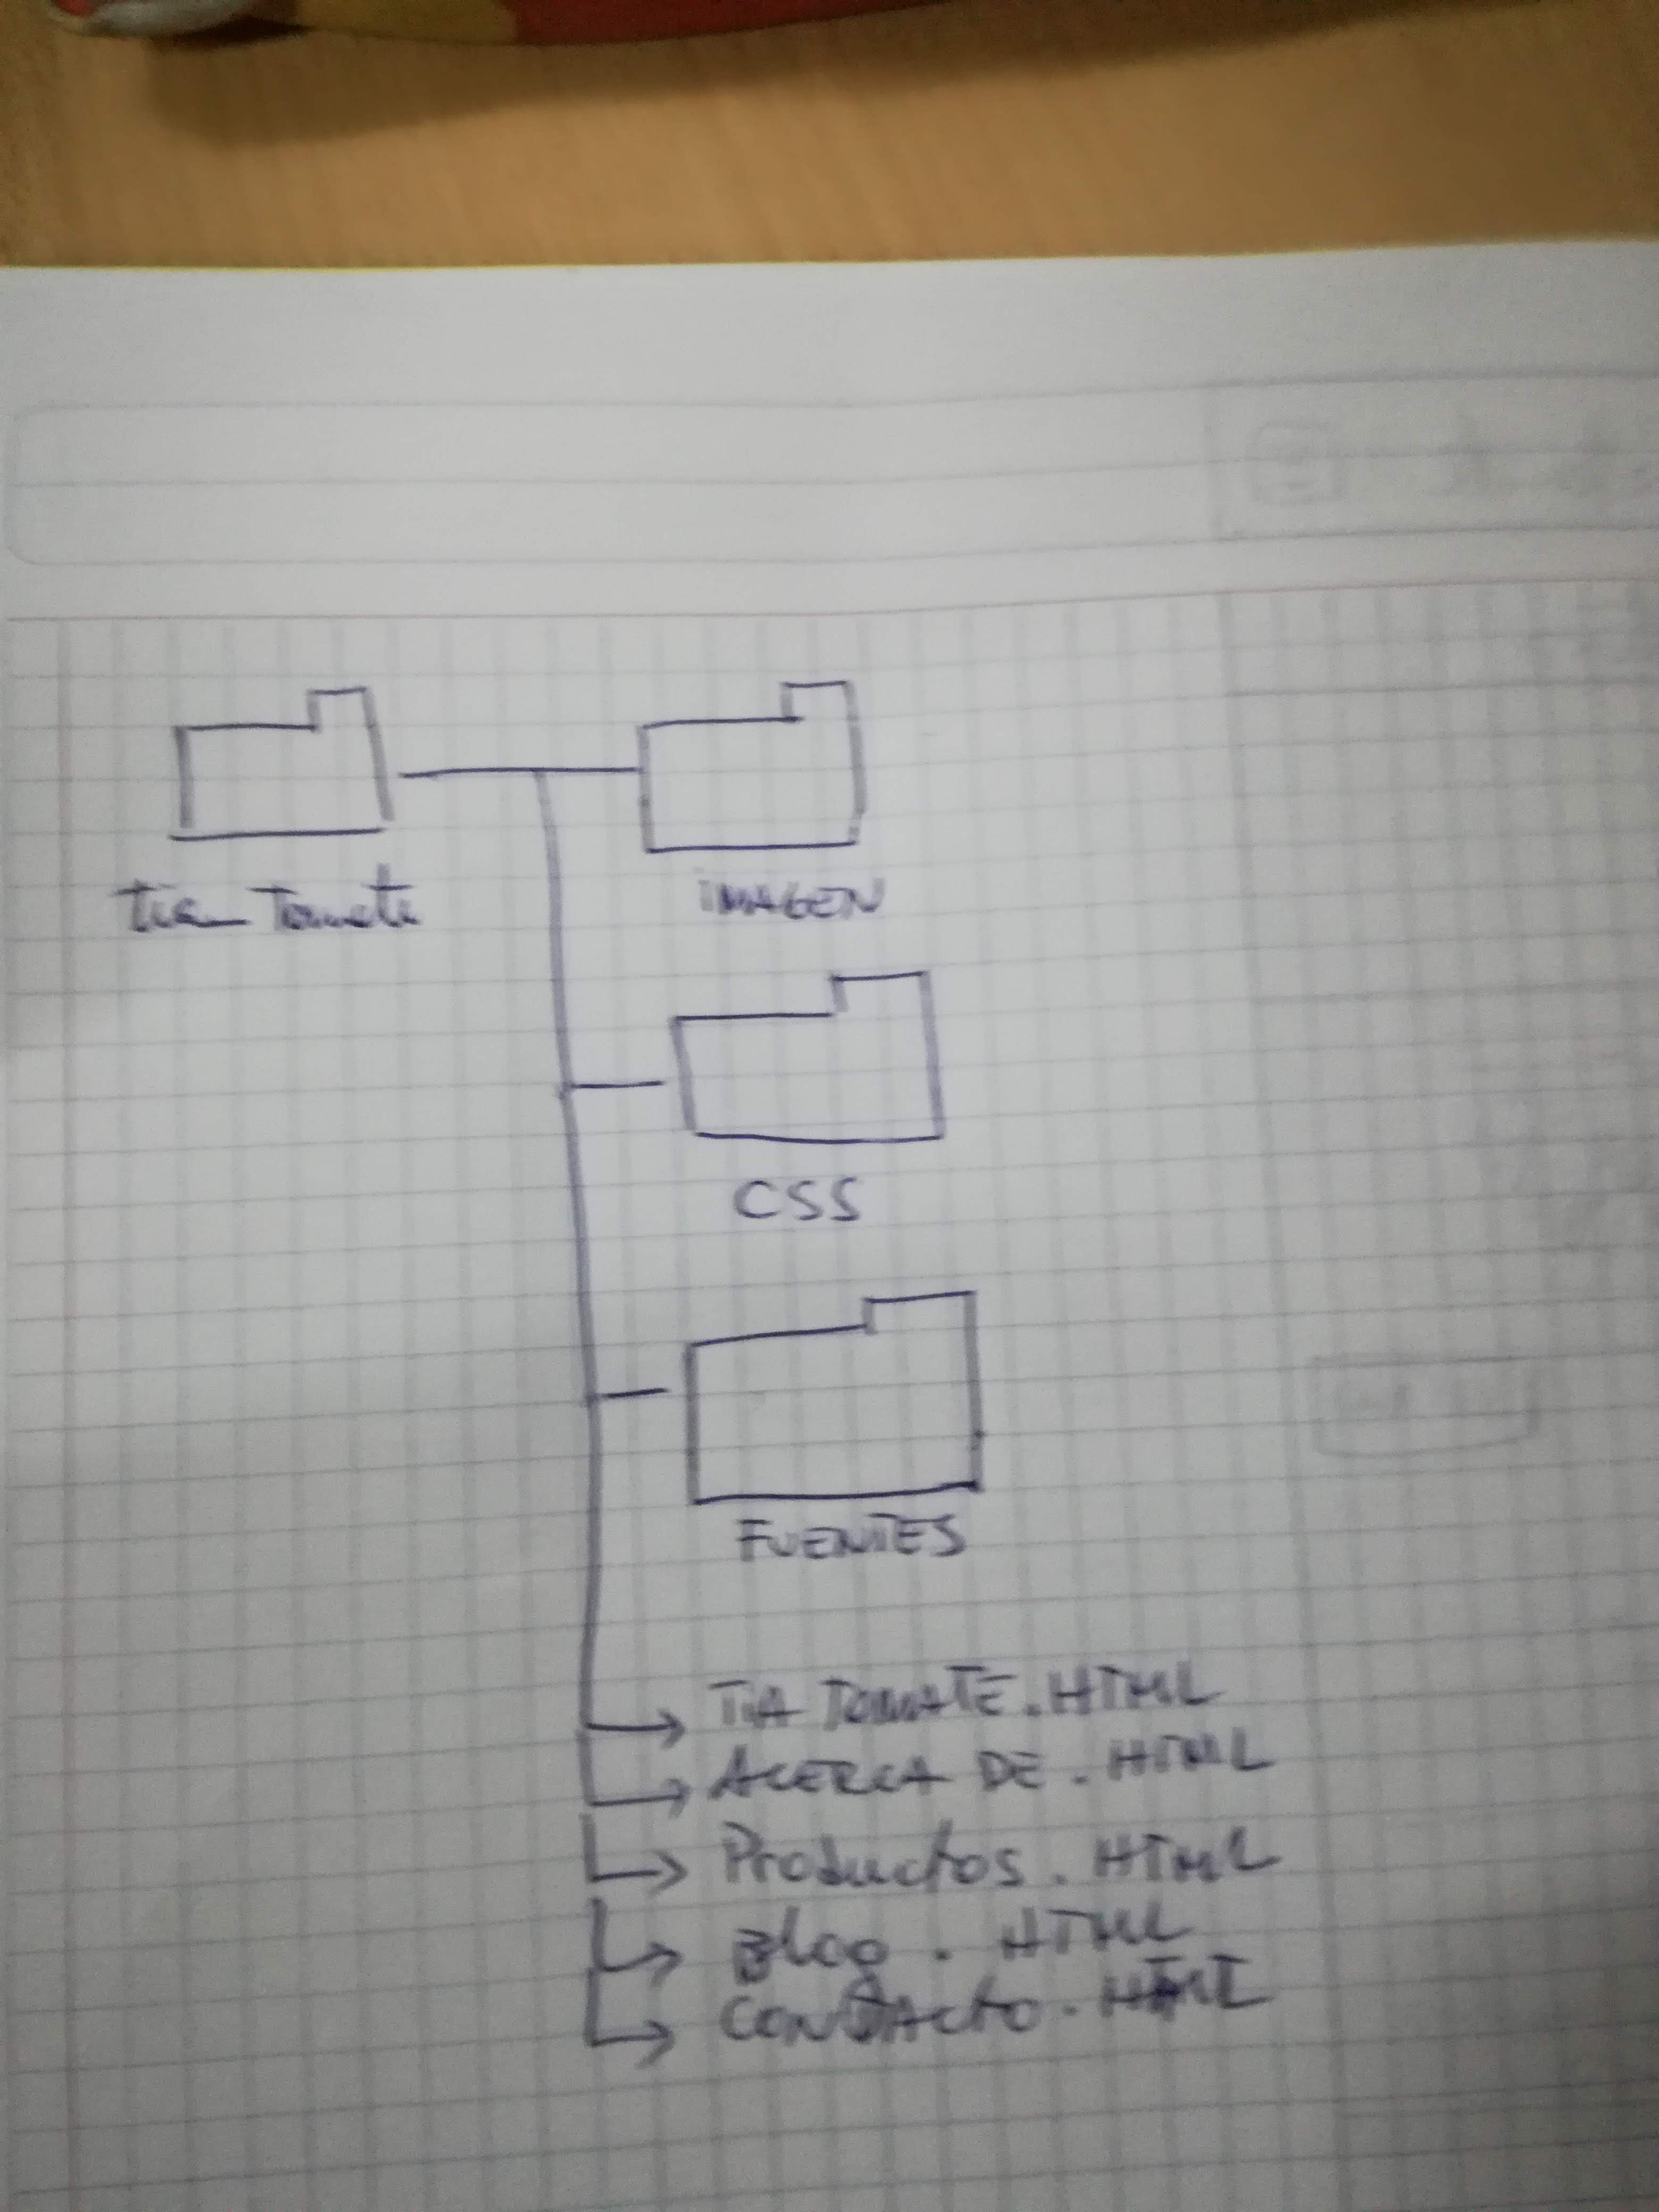 tia_Tomate
IMAGEN
CSS
FUENTES
TIA TOMATE.HTML
ACERCA DE.HTML
Productos.HTML
Blog.HTML
Contacto.HTML